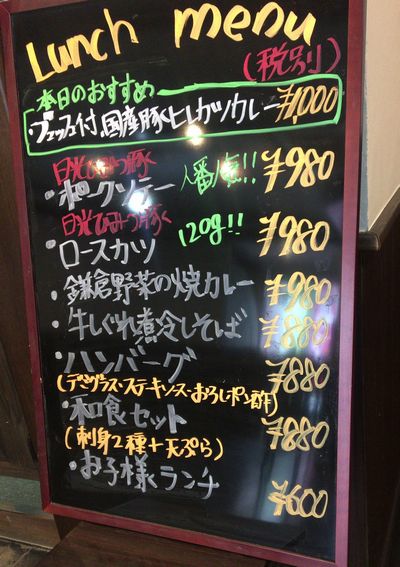 Lunch menu
(税別)
本日のおすすめ
・ブュッフェ付、国産豚ヒレカツカレー ¥1,000
日光ひみつ豚く
・ポークソテー 人番人気!! ¥980
日光ひみつ豚く
・ロースカツ 120g!! ¥980
・鎌倉野菜の焼カレー ¥980
・牛しぐれ煮冷しそば ¥880
・ハンバーグ ¥880
(デミグラス・ステーキソース・おろしポン酢)
・和食セット ¥880
(刺身2種+天ぷら)
・お子様ランチ ¥600